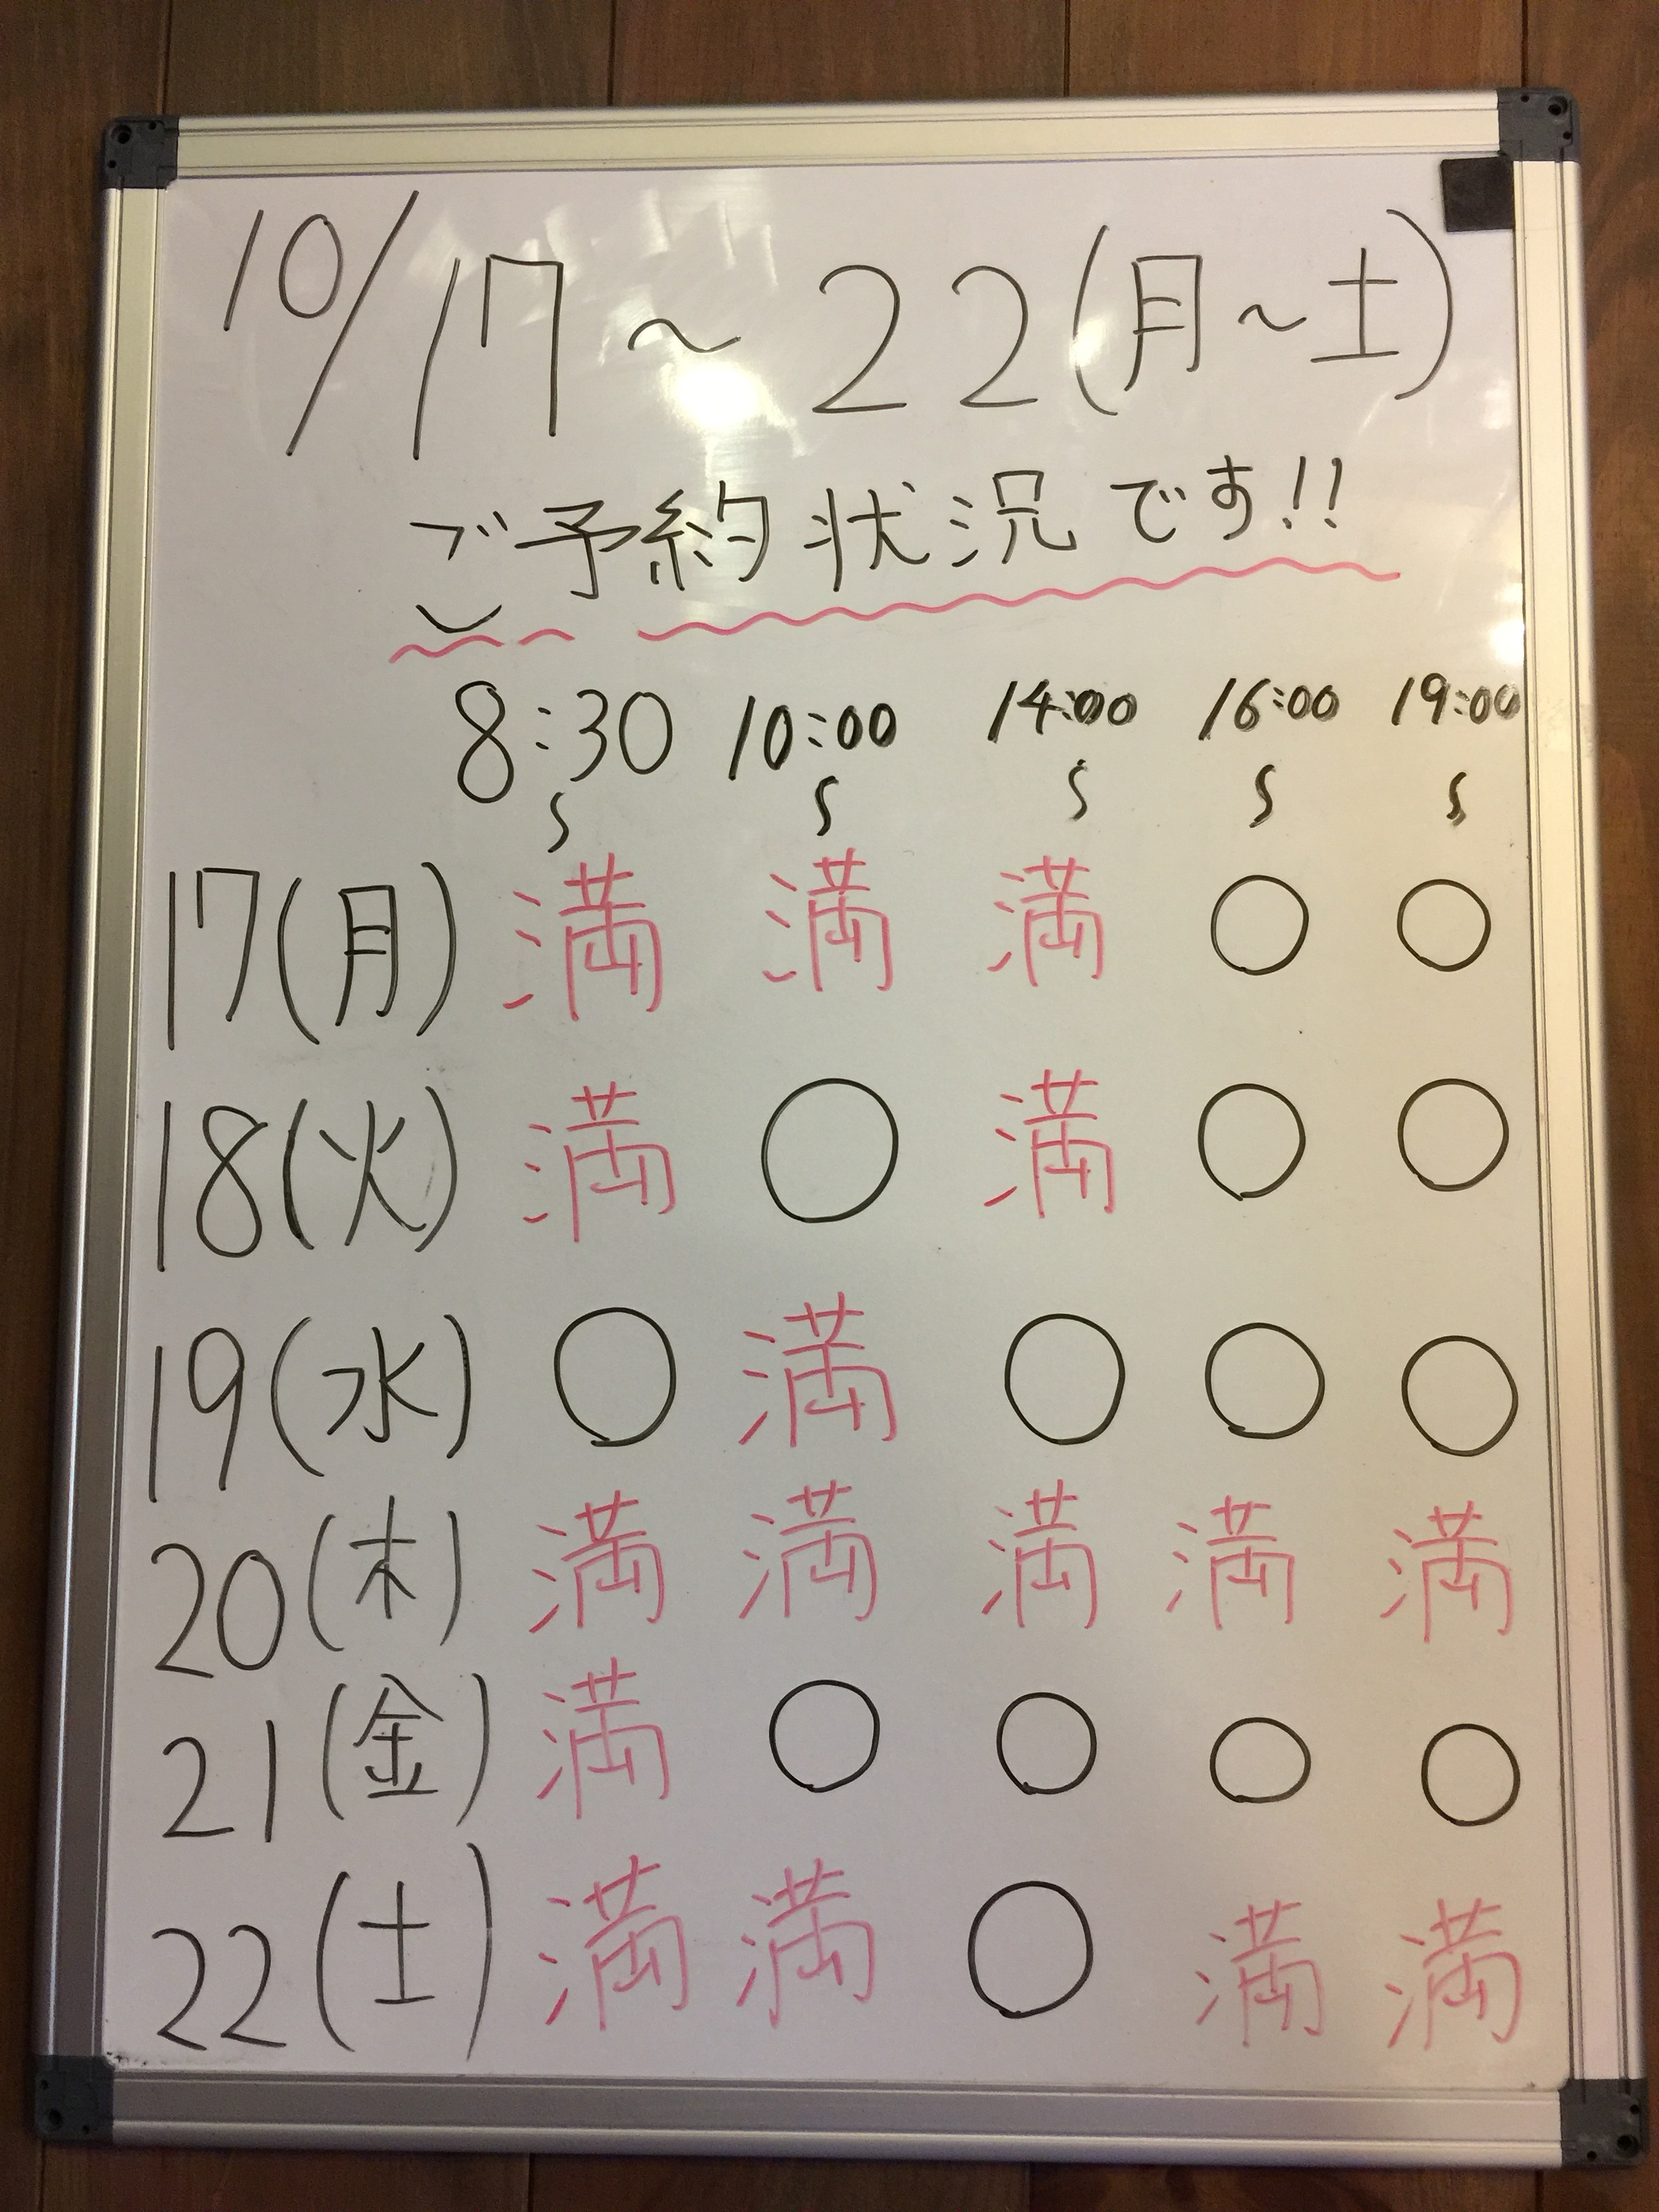 10/17~22(月~土)
ご予約状況です!!
8:30~ 10:00~ 14:00~ 16:00~ 19:00~
17(月) 満 満 満 ○ ○
18(火) 満 ○ 満 ○ ○
19(水) ○ 満 ○ ○ ○
20(木) 満 満 満 満 満
21(金) 満 ○ ○ ○ ○
22(土) 満 満 ○ 満 満